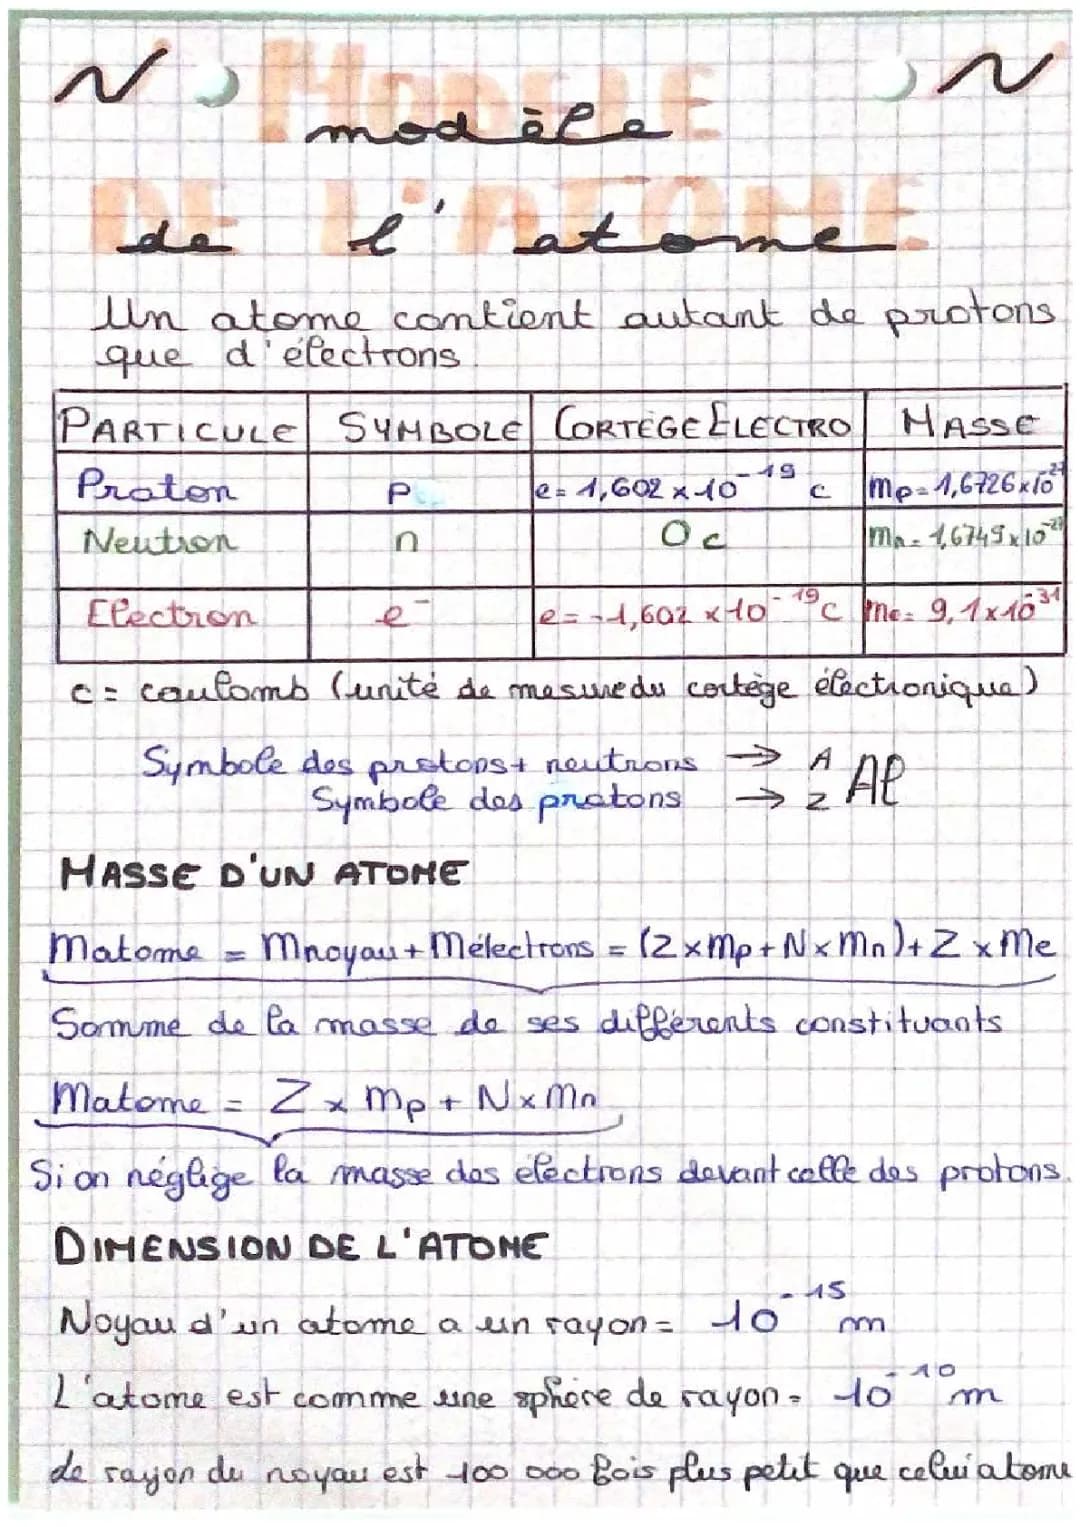 MODELE
modèle
DE L'ATOME
de l'atome
Un atome contient autant de protons
que d'électrons.
PARTICULE SYMBOLE CORTÈGE ÉLECTRO MASSE
Proton p e = 1,602 × 10⁻¹⁹ c mp = 1,6726 × 10⁻²⁷
Neutron n 0 c mn = 1,6749 × 10⁻²⁷
Electron e⁻ e = -1,602 × 10⁻¹⁹ c me = 9,1 × 10⁻³¹
c = coulomb (unité de mesure du cortège électronique)
Symbole des protons + neutrons → A
Symbole des protons → Z Al
MASSE D'UN ATOME
Matome = Mnoyau + Mélectrons = (Z × mp + N × mn) + Z × me
Somme de la masse de ses différents constituants
Matome = Z × mp + N × mn
Si on néglige la masse des électrons devant celle des protons.
DIMENSION DE L'ATOME
Noyau d'un atome a un rayon = 10⁻¹⁵ m
L'atome est comme une sphère de rayon = 10⁻¹⁰ m
de rayon du noyau est 100 000 fois plus petit que celui atome